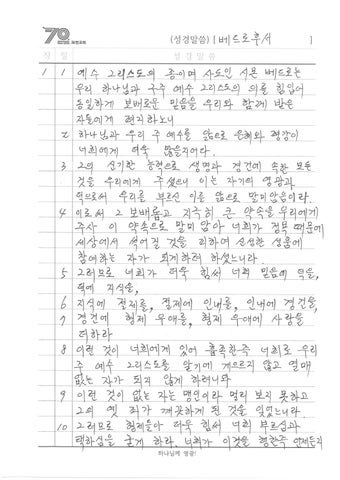 70 과천교회 (성경말씀) [베드로후서 ]
장 절 성경말씀
1 1 예수 그리스도의 종이며 사도인 시몬 베드로는
우리 하나님과 구주 예수 그리스도의 의를 힘입어
동일하게 보배로운 믿음을 우리와 함께 받은
자들에게 편지하노니
2 하나님과 우리 주 예수를 앎으로 은혜와 평강이
너희에게 더욱 많을지어다.
3 그의 신기한 능력으로 생명과 경건에 속한 모든
것을 우리에게 주셨으니 이는 자기의 영광과
덕으로써 우리를 부르신 이를 앎으로 말미암음이라.
4 이로써 그 보배롭고 지극히 큰 약속을 우리에게
주사 이 약속으로 말미암아 너희가 정욕 때문에
세상에서 썩어질 것을 피하여 신성한 성품에
참여하는 자가 되게하려 하셨느니라.
5 그러므로 너희가 더욱 힘써 너희 믿음에 덕을,
덕에 지식을,
6 지식에 절제를, 절제에 인내를, 인내에 경건을,
7 경건에 형제 우애를, 형제 우애에 사랑을
더하라
8 이런 것이 너희에게 있어 흡족한즉 너희로 우리
주 예수 그리스도를 알기에 게으르지 않고 열매
없는 자가 되지 않게 하려니와
9 이런 것이 없는 자는 맹인이라 멀리 보지 못하고
그의 옛 죄가 깨끗하게 된 것을 잊었느니라
10 그러므로 형제들아 더욱 힘써 너희 부르심과
택하심을 굳게 하라. 너희가 이것을 행한즉 언제든지
하나님께 영광!